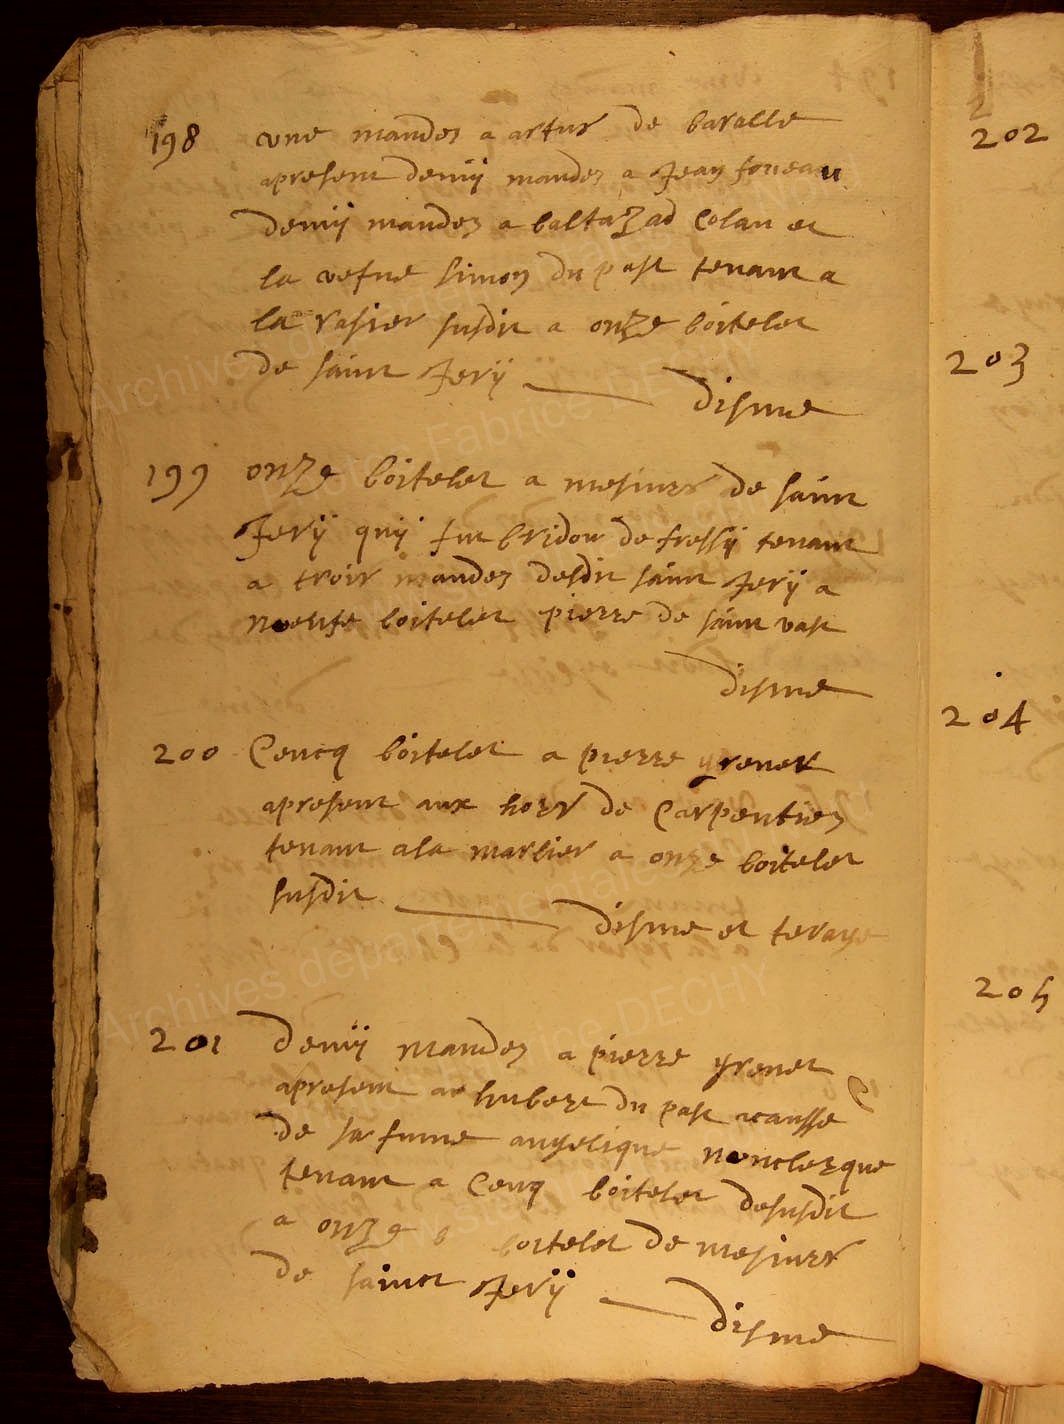 198 une mandez a artus de baralle
apresent demij mandez a Jean foueau
demij mandez a baltazad Colau et
la vefue simon du past tenant a
la rasier susdit a onze boitelet
de saint Jerij disme
199 onze boitelet a mesiurs de saint
Jerij quij fut bridou de fressij tenant
a trois mandez desdit saint Jerij a
noeufe boitelet pierre de saint vast
disme
200 Cencq boitelet a pierre grenet
apresent aux hoirs de Carpentiez
tenant a la marlier a onze boitelet
susdit disme et terage
201 demij mandez a pierre grenet
apresent a hubert du past acausse
de sa fume angelique nonclerque
tenant a Cenq boitelet desusdit
a onze boitelet de mesiurs
de sainct Jerij disme
202
203
204
205
Archives départementales
Fabrice DECHY
Archives départementales
Fabrice DECHY